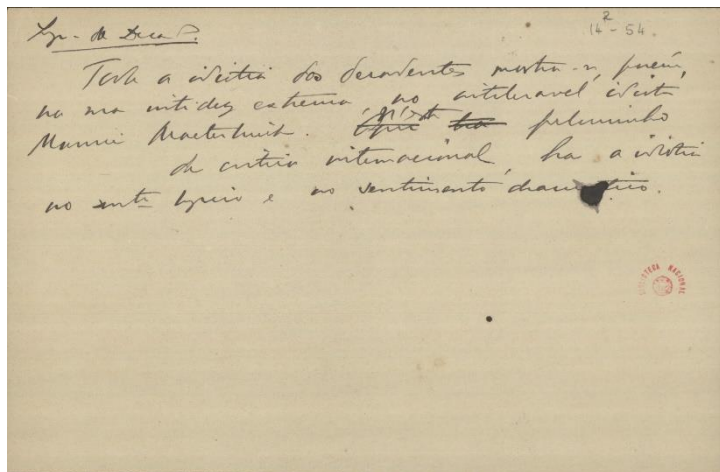 14²-54
Toda a idiotia dos decadentes mostra-se, porém,
na sua nitidez extrema, no intoleravel idiota
Maurice Maeterlinck. N'este
da critica internacional, ha a idiotia
no sent^to lyrico e no sentimento dramatico.
BIBLIOTECA NACIONAL